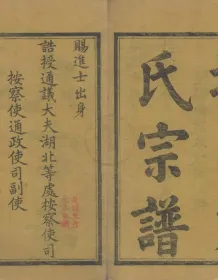 氏宗譜
賜進士出身
誥授通議大夫湖北等處按察使司
按察使通政使司副使